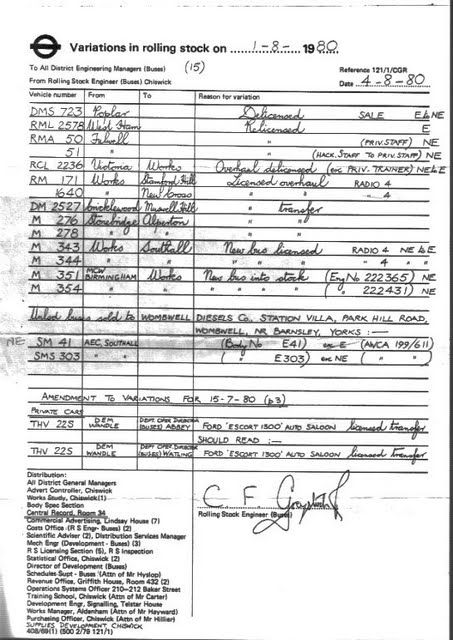 Variations in rolling stock on 1-8- 1980
To All District Engineering Managers (Buses) (15)
Reference 121/1/CGR
From Rolling Stock Engineer (Buses) Chiswick
Date 4-8-80
Vehicle number From To Reason for variation
DMS 723 Poplar Delicensed SALE E & NE
RML 2578 West Ham Relicensed E
RMA 50 Fulwell " (PRIV. STAFF) NE
51 " " (HACK. STAFF TO PRIV. STAFF) NE
RCL 2236 Victoria Works Overhaul delicensed (exc PRIV. TRAINER) NE & E
RM 171 Works Stamford Hill Licensed overhaul RADIO 4
1640 " New Cross " " " 4
DM 2527 Cricklewood Muswell Hill " transfer
M 276 Stonebridge Alperton " "
M 278 " " " "
M 343 Works Southall New bus licensed RADIO 4 NE & E
M 344 " " " " " 4 " "
M 351 MCW BIRMINGHAM Works New bus into stock (Eng No 222365) NE
M 354 " " " " ( " 222431) NE
Unlicd buses sold to WOMBWELL DIESELS Co. STATION VILLA, PARK HILL ROAD,
WOMBWELL, NR BARNSLEY, YORKS :—
NE SM 41 AEC, SOUTHALL (Body No E41) exc E (AWCA 199/611)
SMS 303 " " ( " E303) exc NE ( " " )
AMENDMENT TO VARIATIONS FOR 15-7-80 (p3)
PRIVATE CARS
THV 22S DEM WANDLE DEPT. OPER. DIRECTOR (BUSES) ABBEY FORD 'ESCORT 1300' AUTO SALOON licensed transfer
SHOULD READ :—
THV 22S DEM WANDLE DEPT OPER DIRECTOR (BUSES) WATLING FORD 'ESCORT 1300' AUTO SALOON licensed transfer
Distribution:
All District General Managers
Advert Controller, Chiswick
Works Study, Chiswick (1)
Body Spec Section
Central Record, Room 34
Commercial Advertising, Lindsay House (7)
Costs Office (R S Engr- Buses) (2)
Scientific Adviser (2), Distribution Services Manager
Mech Engr (Development - Buses) (3)
R S Licensing Section (5), R S Inspection
Statistical Office, Chiswick (2)
Director of Development (Buses)
Schedules Supt - Buses (Attn of Mr Hyslop)
Revenue Office, Griffith House, Room 432 (2)
Operations Systems Officer 210–212 Baker Street
Training School, Chiswick (Attn of Mr Carter)
Development Engr, Signalling, Telstar House
Works Manager, Aldenham (Attn of Mr Hayward)
Purchasing Officer, Chiswick (Attn of Mr Hillier)
SUPPLIES DEVELOPMENT CHISWICK
408/69(1) (500 2/79 121/1)
C F
Rolling Stock Engineer (Buses)